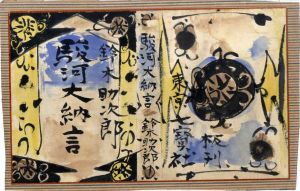 鈴木助次郎
駿河大納言
駿河大納言 鈴木助次郎
東京七寳社
板刊